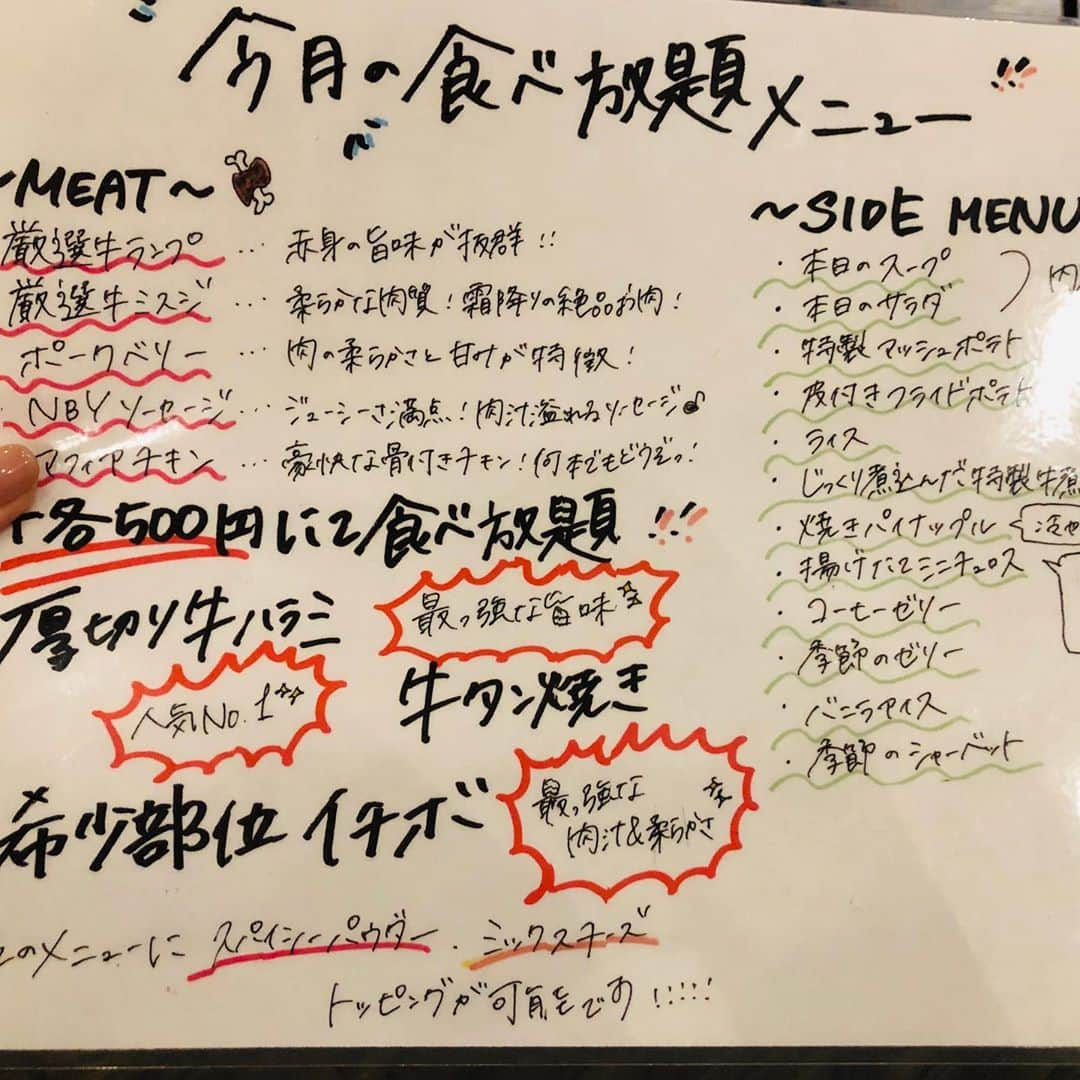 今月の食べ放題メニュー!!
~MEAT~
厳選牛ランプ … 赤身の旨味が抜群!!
厳選牛ミスジ … 柔らかな肉質!霜降りの絶品お肉!
ポークベリー … 肉の柔らかさと甘みが特徴!
NBYソーセージ … ジューシーさ満点!肉汁溢れるソーセージ♪
マフィアチキン … 豪快な骨付きチキン!何本でもどうぞっ!
各500円にて食べ放題!!
厚切り牛ハラミ
最っ強な旨味
人気No.1
牛タン焼き
希少部位イチボ
最っ強な
肉汁&柔らかさ
のメニューに スパイシーパウダー・ミックスチーズ
トッピングが可能です!!!!!
~SIDE MENU
・本日のスープ
・本日のサラダ
肉
・特製マッシュポテト
・皮付きフライドポテト
・ライス
・じっくり煮込んだ特製牛煮
・焼きパイナップル
冷や
・揚げたてミニチュロス
・コーヒーゼリー
・季節のゼリー
・バニラアイス
・季節のシャーベット